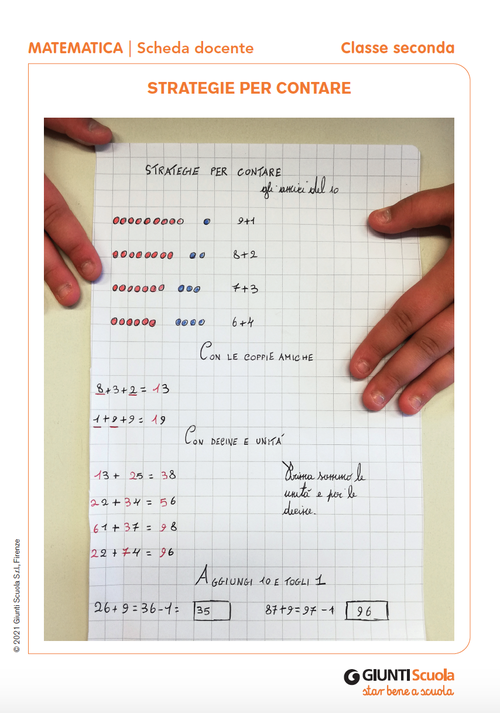 MATEMATICA | Scheda docente
Classe seconda
STRATEGIE PER CONTARE
STRATEGIE PER CONTARE
gli amici del 10
9+1
8+2
7+3
6+4
CON LE COPPIE AMICHE
8+3+2=13
1+9+9=19
CON DECINE E UNITÀ
13+25=38
22+34=56
61+37=98
22+74=96
Prima sommo le
unità e poi le
decine.
AGGIUNGI 10 E TOGLI 1
26+9=36-1= 35
87+9=97-1 96
© 2021 Giunti Scuola S.r.l., Firenze
GIUNTI Scuola
star bene a scuola